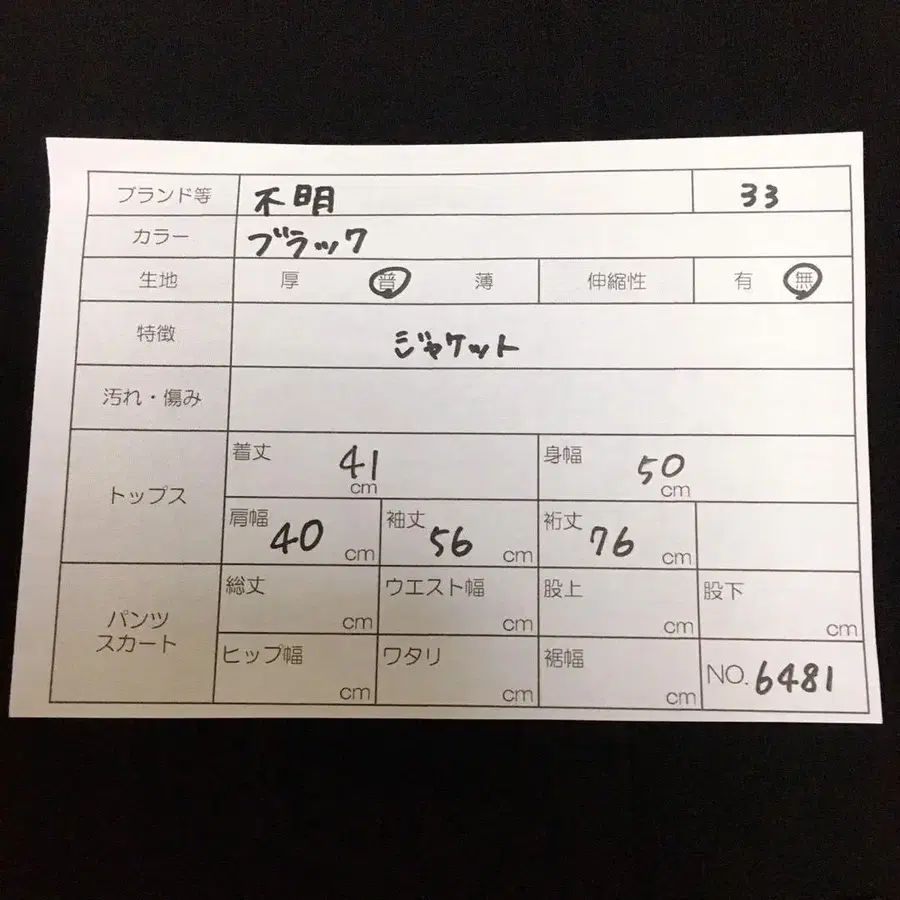 ブランド等 不明 33
カラー ブラック
生地 厚 普 薄 伸縮性 有 無
特徴 ジャケット
汚れ・傷み
トップス
着丈 41 cm 身幅 50 cm
肩幅 40 cm 袖丈 56 cm 裄丈 76 cm
パンツ
スカート
総丈 cm ウエスト幅 cm 股上 cm 股下 cm
ヒップ幅 cm ワタリ cm 裾幅 cm NO. 6481